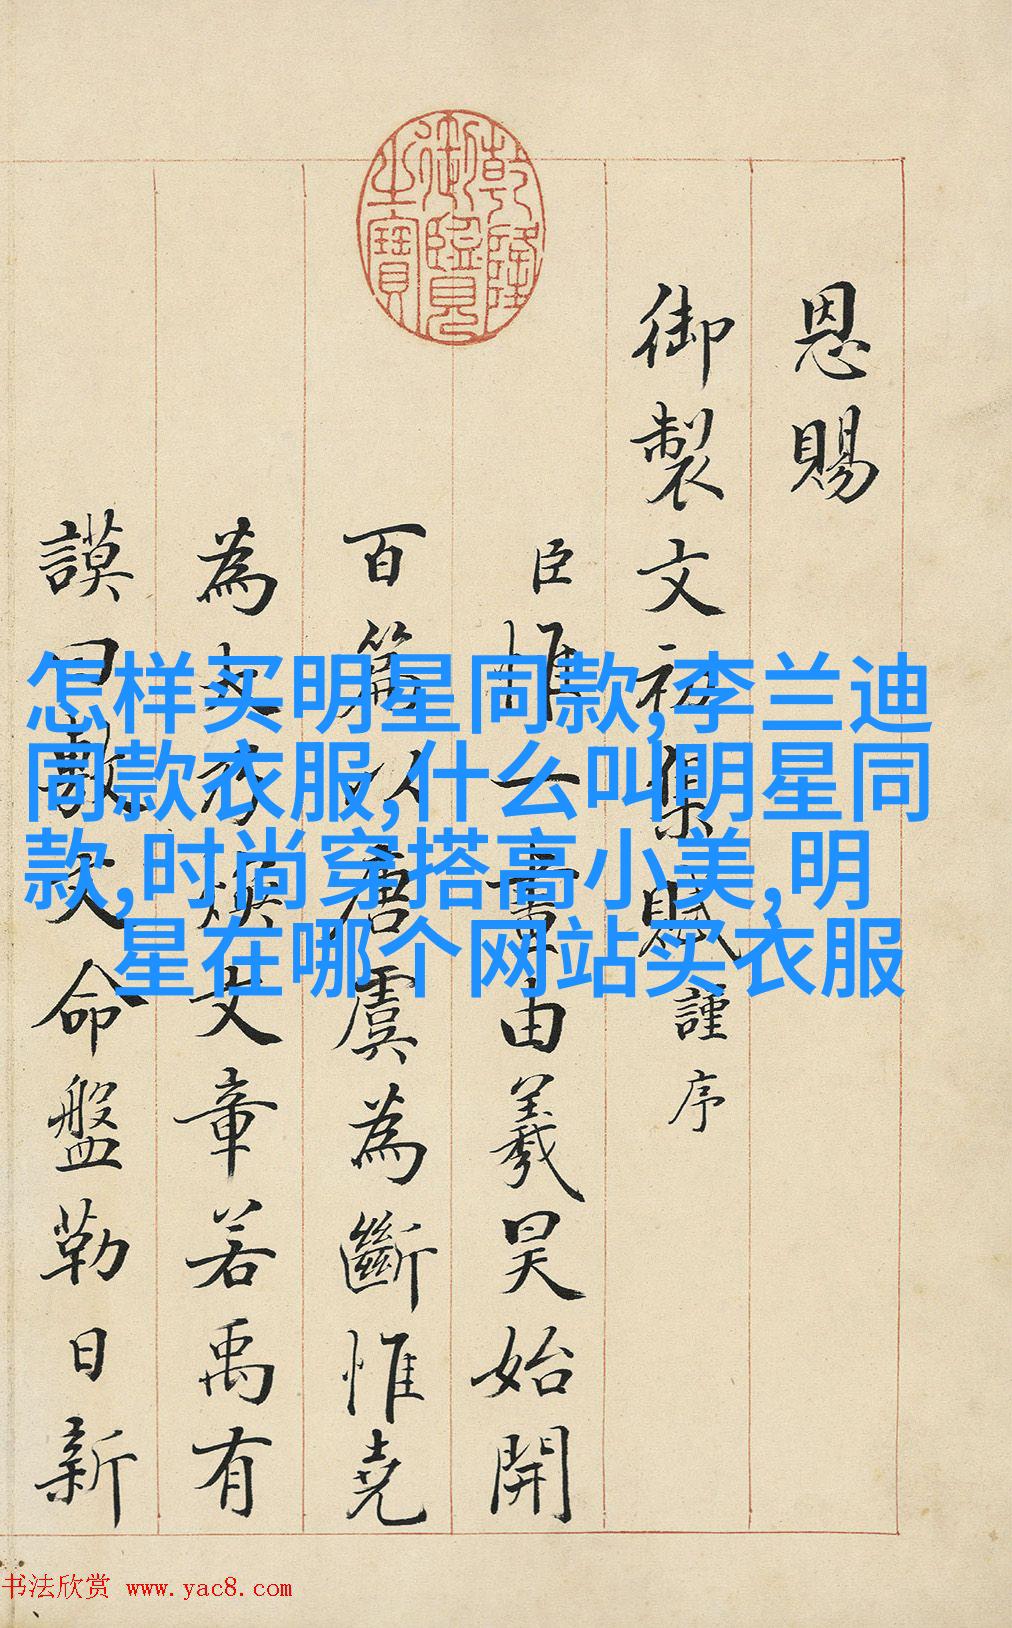 乾隆
御覽
之寶
恩賜
御製文初集賦謹序
臣惟一畫由羲昊始開
百篇以唐虞為斷惟堯
為煥文章若禹有
謨曰敷文命盤勒日新
怎样买明星同款,李兰迪
同款衣服,什么叫明星同
款,时尚穿搭高小美,明
星在哪个网站买衣服
书法欣赏 www.yac8.com